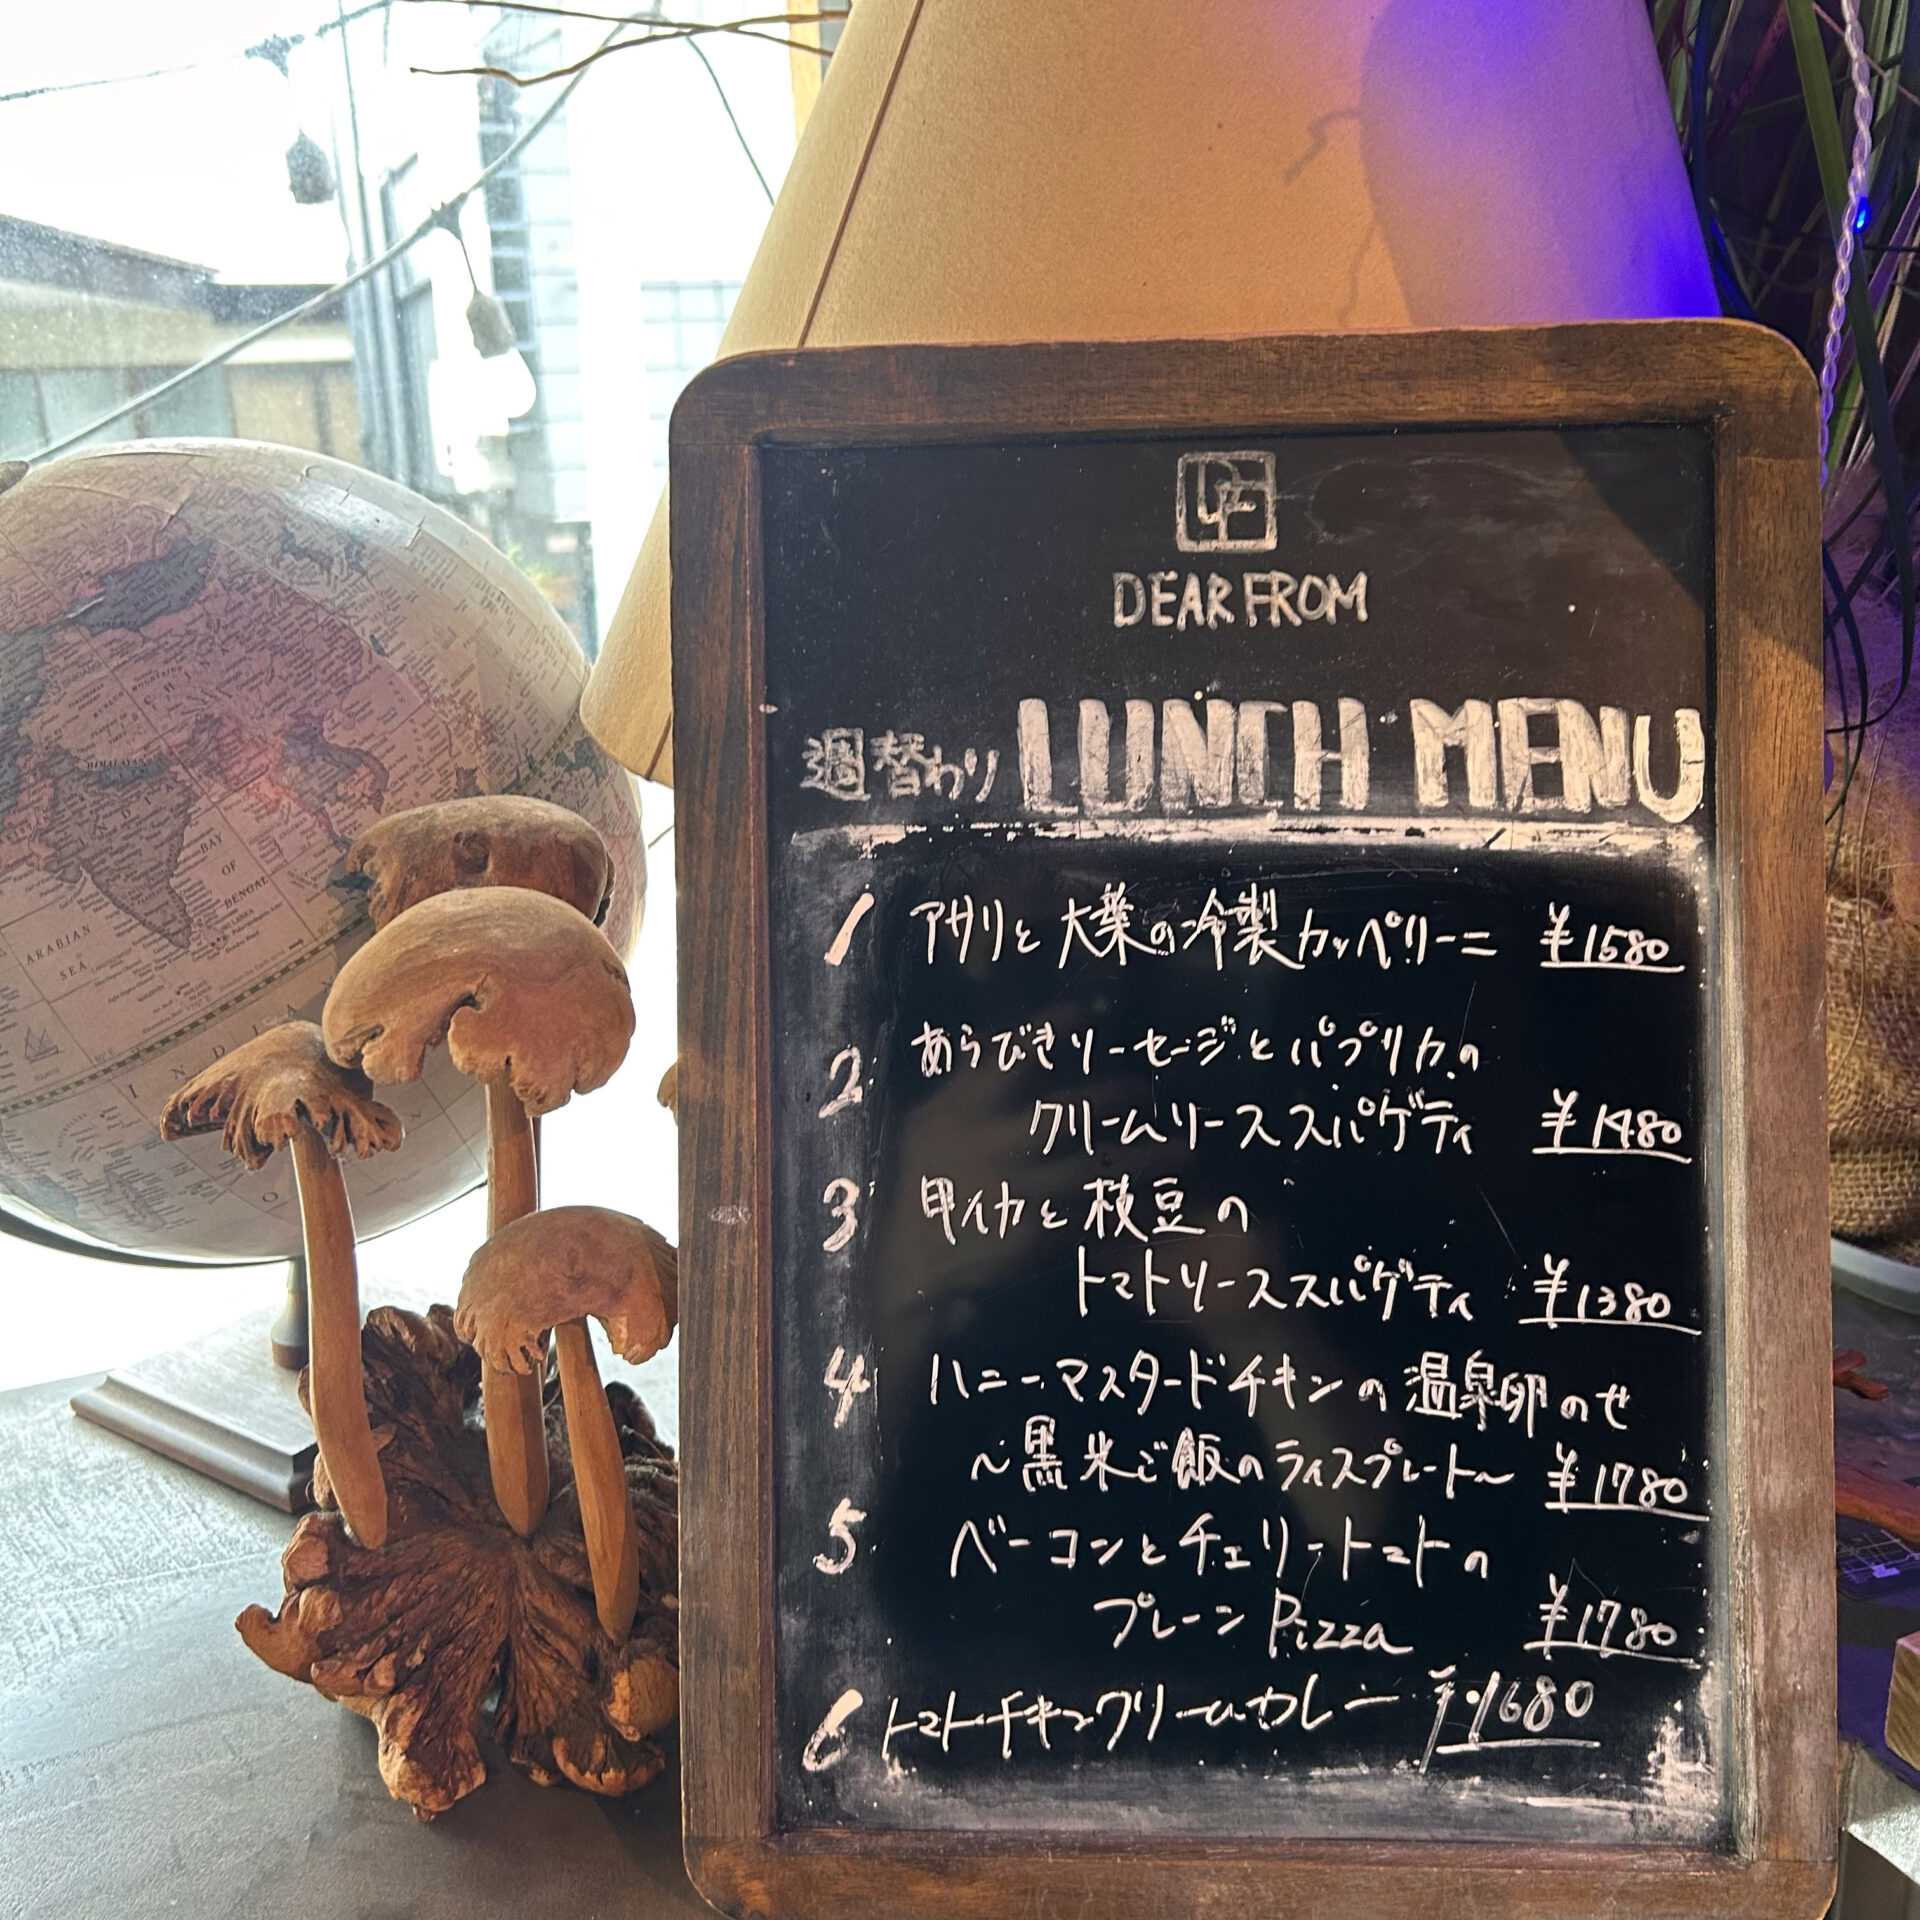 DF
DEAR FROM
週替わり LUNCH MENU
1 アサリと大葉の冷製カッペリーニ ¥1580
2 あらびきソーセージとパプリカの
クリームソーススパゲティ ¥1480
3 甲イカと枝豆の
トマトソーススパゲティ ¥1380
4 ハニーマスタードチキンの温泉卵のせ
～黒米ご飯のライスプレート～ ¥1780
5 ベーコンとチェリートマトの
プレーン Pizza ¥1780
6 トマトチキンクリームカレー ¥1680
CHINA
HIMALAYAN
INDIA
BAY
OF
BENGAL
ARABIAN
SEA
INDIAN
O